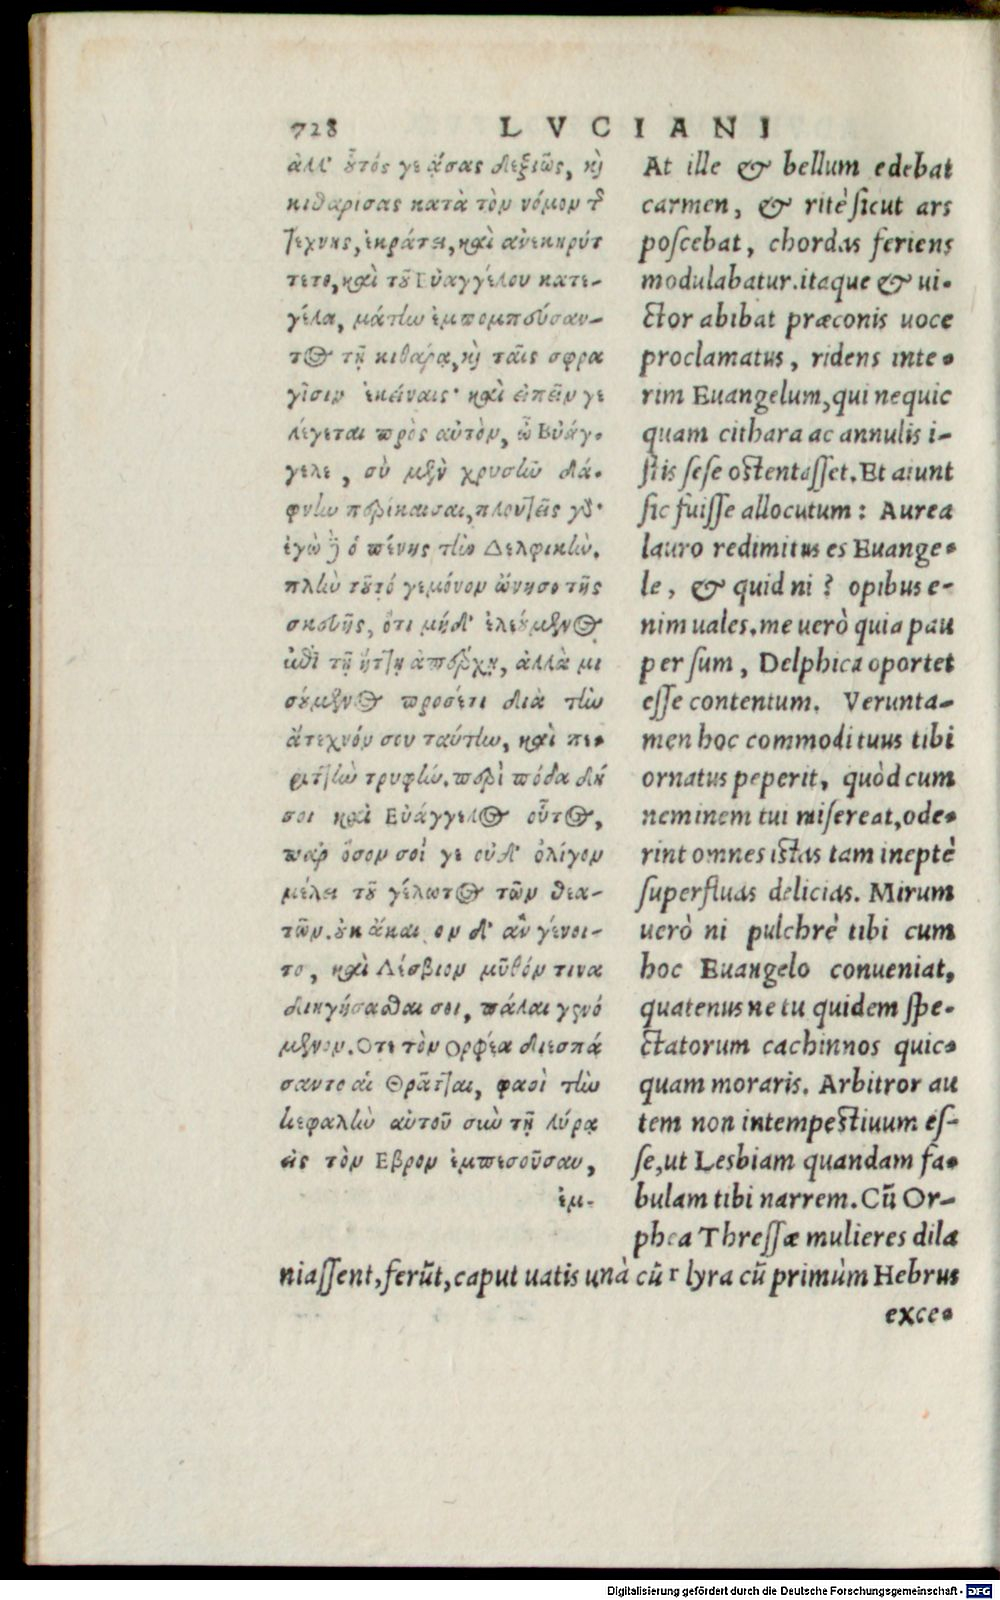 728 LVCIANI
ἀλλ' οὗτός γε ᾄσας δεξιῶς, καὶ
κιθαρίσας κατὰ τὸν νόμον τῆς
τέχνης, ἐκράτει, καὶ ἀνεκηρύτ
τετο, καὶ τοῦ Εὐαγγέλου κατε-
γέλα, μάτην ἐμπομπεύσαν-
τος τῇ κιθάρᾳ, καὶ ταῖς σφρα
γῖσιν ἐκείναις· καὶ εἰπεῖν γε
λέγεται πρὸς αὐτὸν, ὦ Εὐάγ-
γελε, σὺ μὲν χρυσῆν δά-
φνην περίκεισαι, πλουτεῖς γάρ·
ἐγὼ δὲ ὁ πένης τὴν Δελφικὴν.
πλὴν τοῦτό γε μόνον ὤνησο τῆς
σκευῆς, ὅτι μήδ' ἐλεούμενος
ἐπὶ τῇ ἥττῃ ἀπέρχῃ, ἀλλὰ μι
σούμενος προσέτι διὰ τὴν
ἄτεχνόν σου ταύτην, καὶ πε-
ριττὴν τρυφήν. περὶ πόδα δή
σοι καὶ Εὐάγγελος οὗτος,
παρ' ὅσον σοί γε οὐδ' ὀλίγον
μέλει τοῦ γέλωτος τῶν θεα-
τῶν. οὐκ ἄκαιρον δ' ἂν γένοι-
το, καὶ Λέσβιον μῦθόν τινα
διηγήσασθαι σοι, πάλαι γενό
μενον. Ὅτε τὸν Ὀρφέα διεσπά
σαντο αἱ Θρᾷτται, φασὶ τὴν
κεφαλὴν αὐτοῦ σὺν τῇ λύρᾳ
εἰς τὸν Ἕβρον ἐμπεσοῦσαν,
ἐμ-
At ille & bellum edebat
carmen, & ritè sicut ars
poscebat, chordas feriens
modulabatur. itaque & ui-
ctor abibat præconis uoce
proclamatus, ridens inte-
rim Euangelum, qui nequic
quam cithara ac annulis i-
stis sese ostentasset. Et aiunt
sic fuisse allocutum: Aurea
lauro redimitus es Euange-
le, & quid ni? opibus e-
nim uales. me uerò quia pau
per sum, Delphica oportet
esse contentum. Verunta-
men hoc commodi tuus tibi
ornatus peperit, quòd cum
neminem tui misereat, ode-
rint omnes istas tam ineptè
superfluas delicias. Mirum
uerò ni pulchrè tibi cum
hoc Euangelo conueniat,
quatenus ne tu quidem spe-
ctatorum cachinnos quic-
quam moraris. Arbitror au
tem non intempestiuum es-
se, ut Lesbiam quandam fa-
bulam tibi narrem. Cũ Or-
phea Thressæ mulieres dila
niassent, ferũt, caput uatis unà cũ lyra cũ primùm Hebrus
exce-
Digitalisierung gefördert durch die Deutsche Forschungsgemeinschaft - DFG